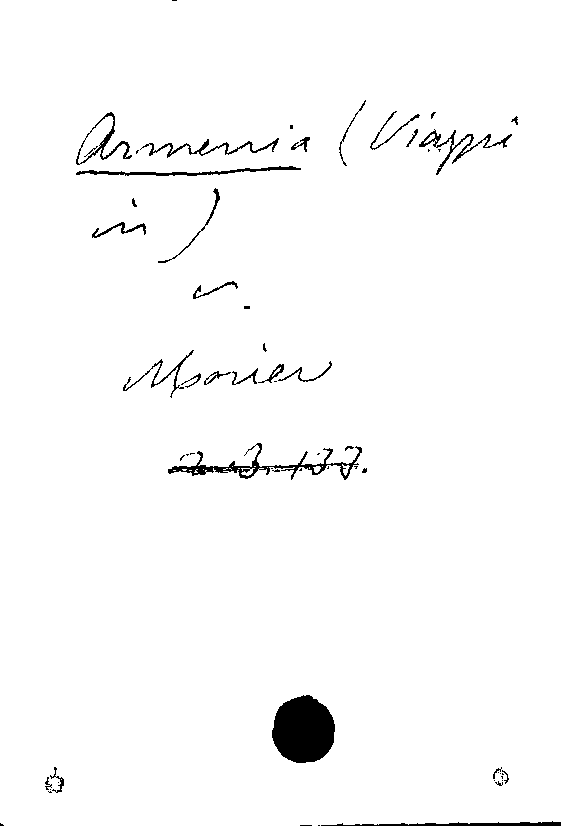 Armenia (Viaggi
in)
v.
Morier
2. 3. 137.